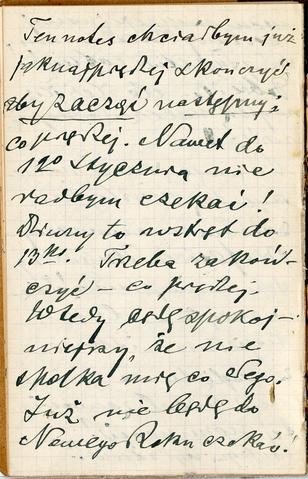 Ten notes chciałbym już
jaknajprędzej skończyć
aby zacząć następny,
co prędzej. Nawet do
1go stycznia nie
radbym czekać!
Dziwny to wstręt do
13ki. Trzeba zakoń-
czyć – co prędzej.
Wtedy będę spokoj-
niejszy, że nie
spotka mię co złego.
Już nie będę do
Nowego Roku czekać!